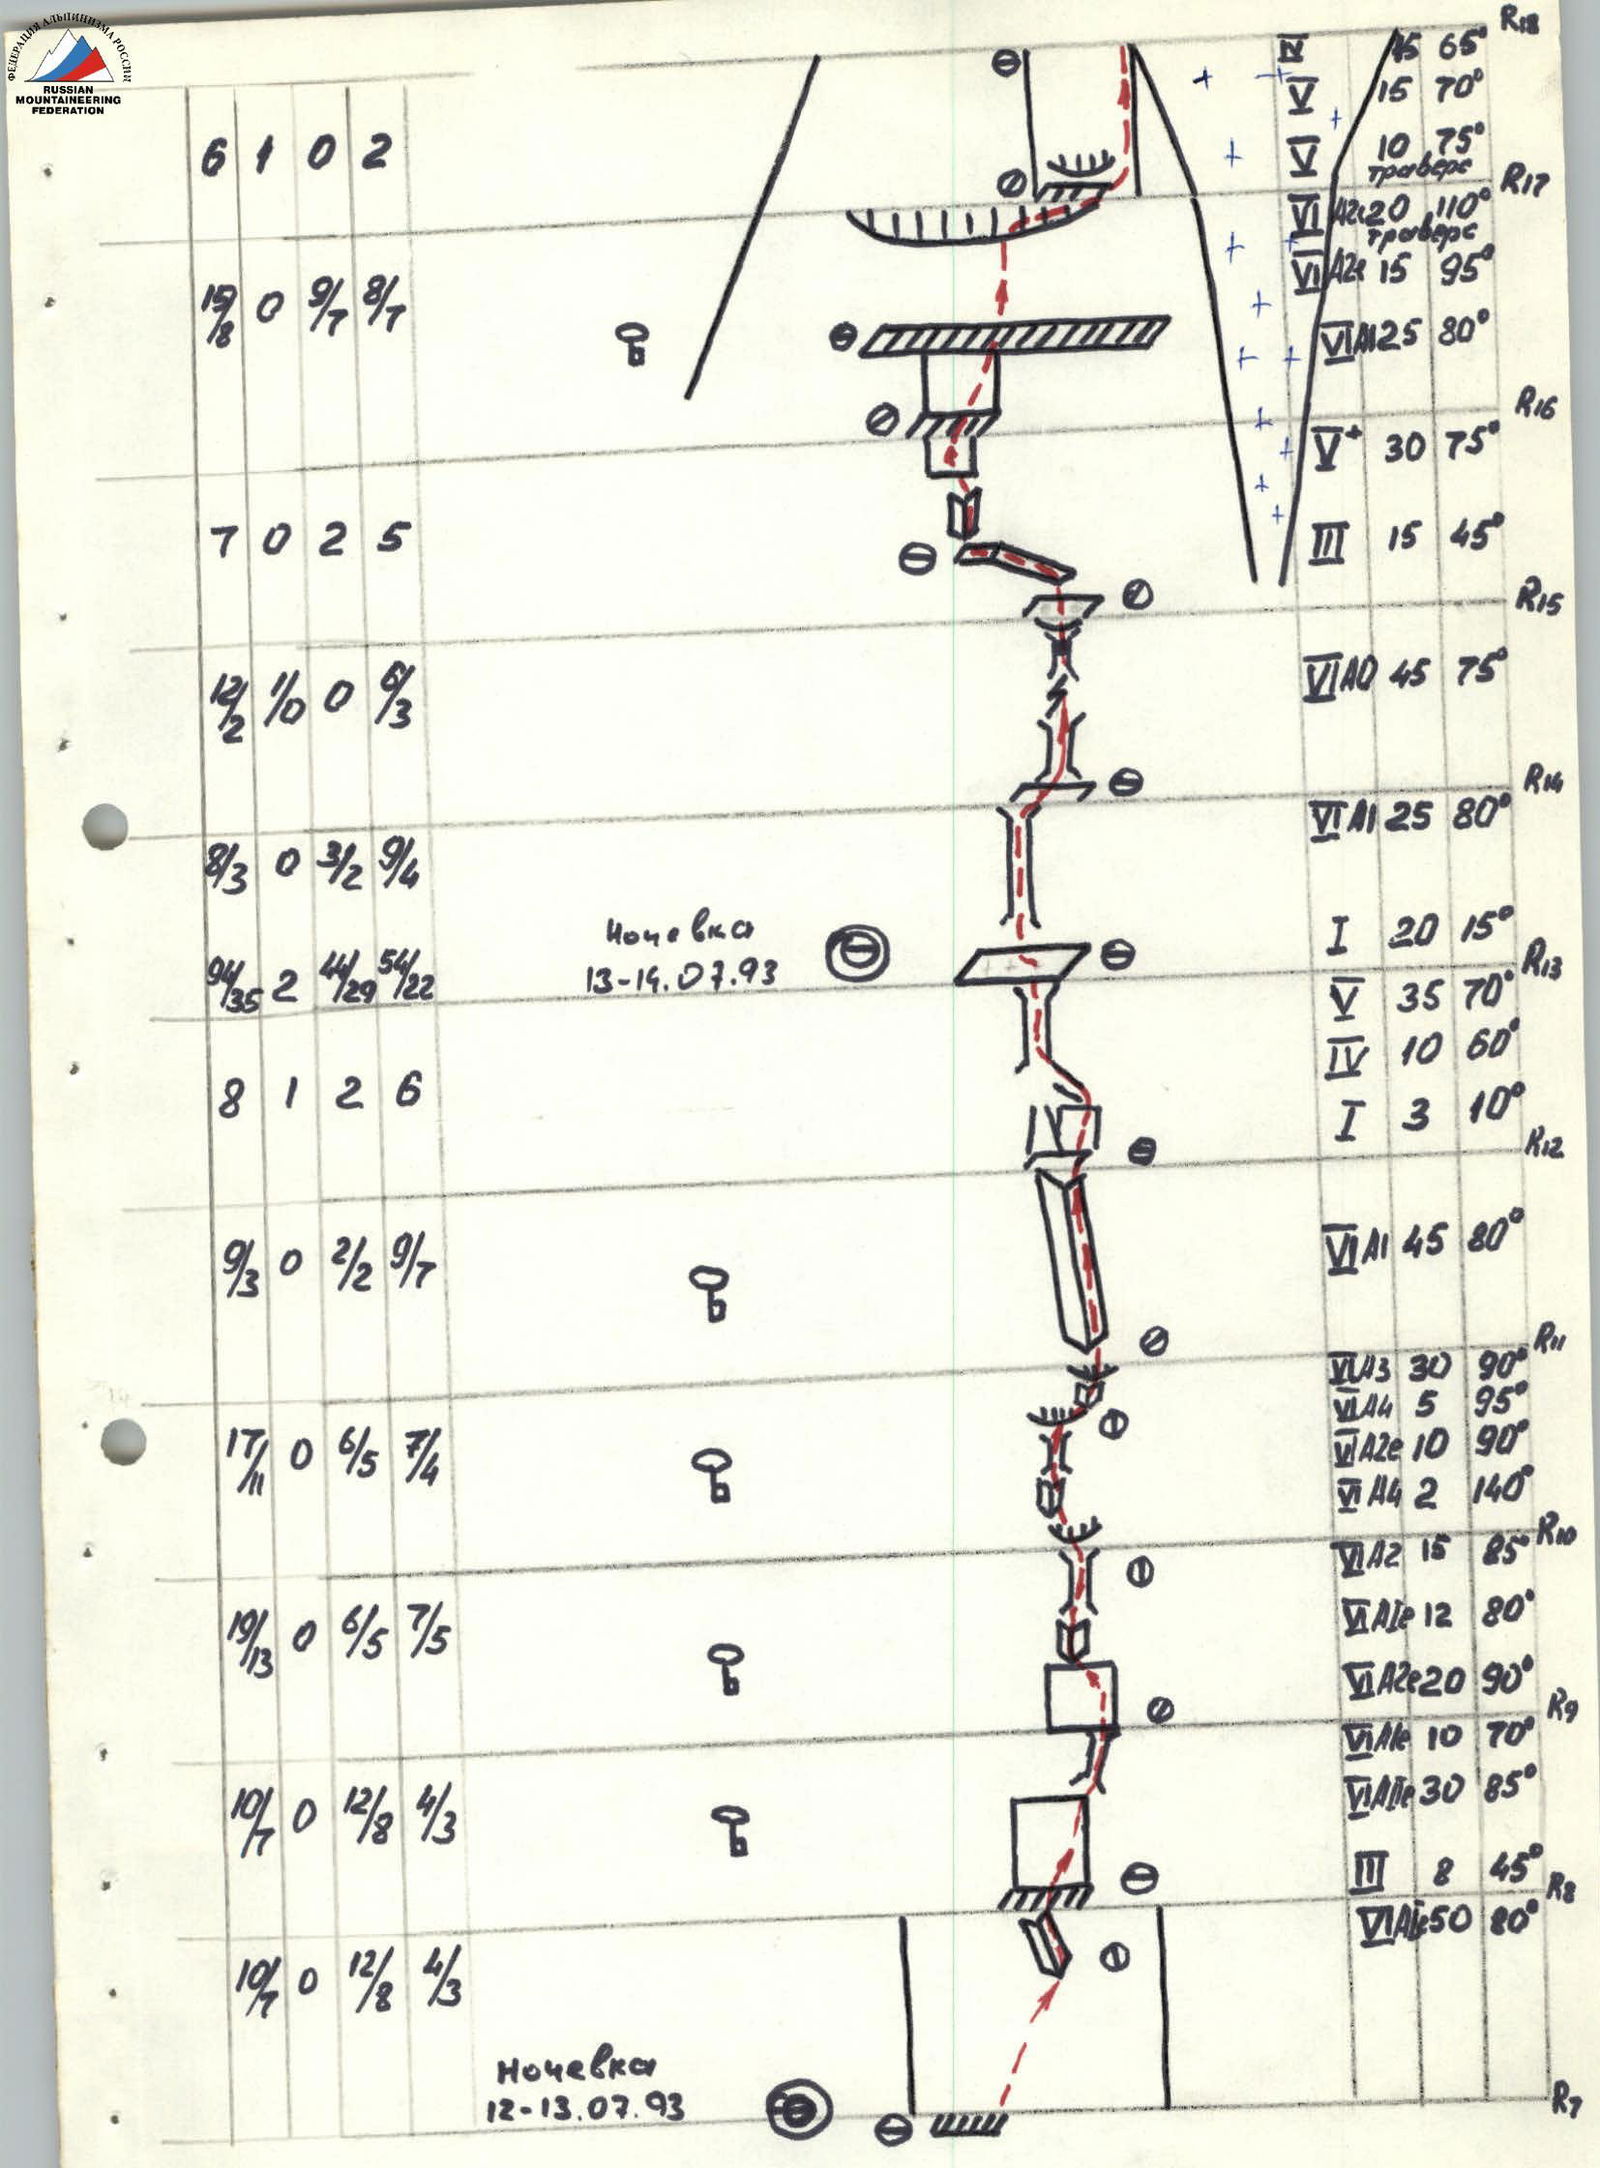 ФЕДЕРАЦИЯ АЛЬПИНИЗМА РОССИИ
RUSSIAN
MOUNTAINEERING
FEDERATION
R18
IV 15 65°
V 15 70°
6 1 0 2
V 10 75°
траверс
R17
VI A2e 20 110°
траверс
VI A2e 15 95°
15/8 0 9/7 8/7
VI A1 25 80°
R16
V+ 30 75°
7 0 2 5
III 15 45°
R15
12/2 1/0 0 6/3
VI A0 45 75°
R14
VI A1 25 80°
8/3 0 3/2 9/4
Ночевка
13-14.07.93
I 20 15°
R13
94/35 2 44/29 54/22
V 35 70°
IV 10 60°
8 1 2 6
I 3 10°
R12
9/3 0 2/2 9/7
VI A1 45 80°
R11
VI A3 30 90°
VI A4 5 95°
17/11 0 6/5 7/4
VI A2e 10 90°
VI A4 2 140°
R10
VI A2 15 85°
19/13 0 6/5 7/5
VI A1e 12 80°
VI A2e 20 90°
R9
VI A1e 10 70°
10/7 0 12/8 4/3
VI A1e 30 85°
III 8 45°
R8
VI A1e 50 80°
10/7 0 12/8 4/3
Ночевка
12-13.07.93
R7